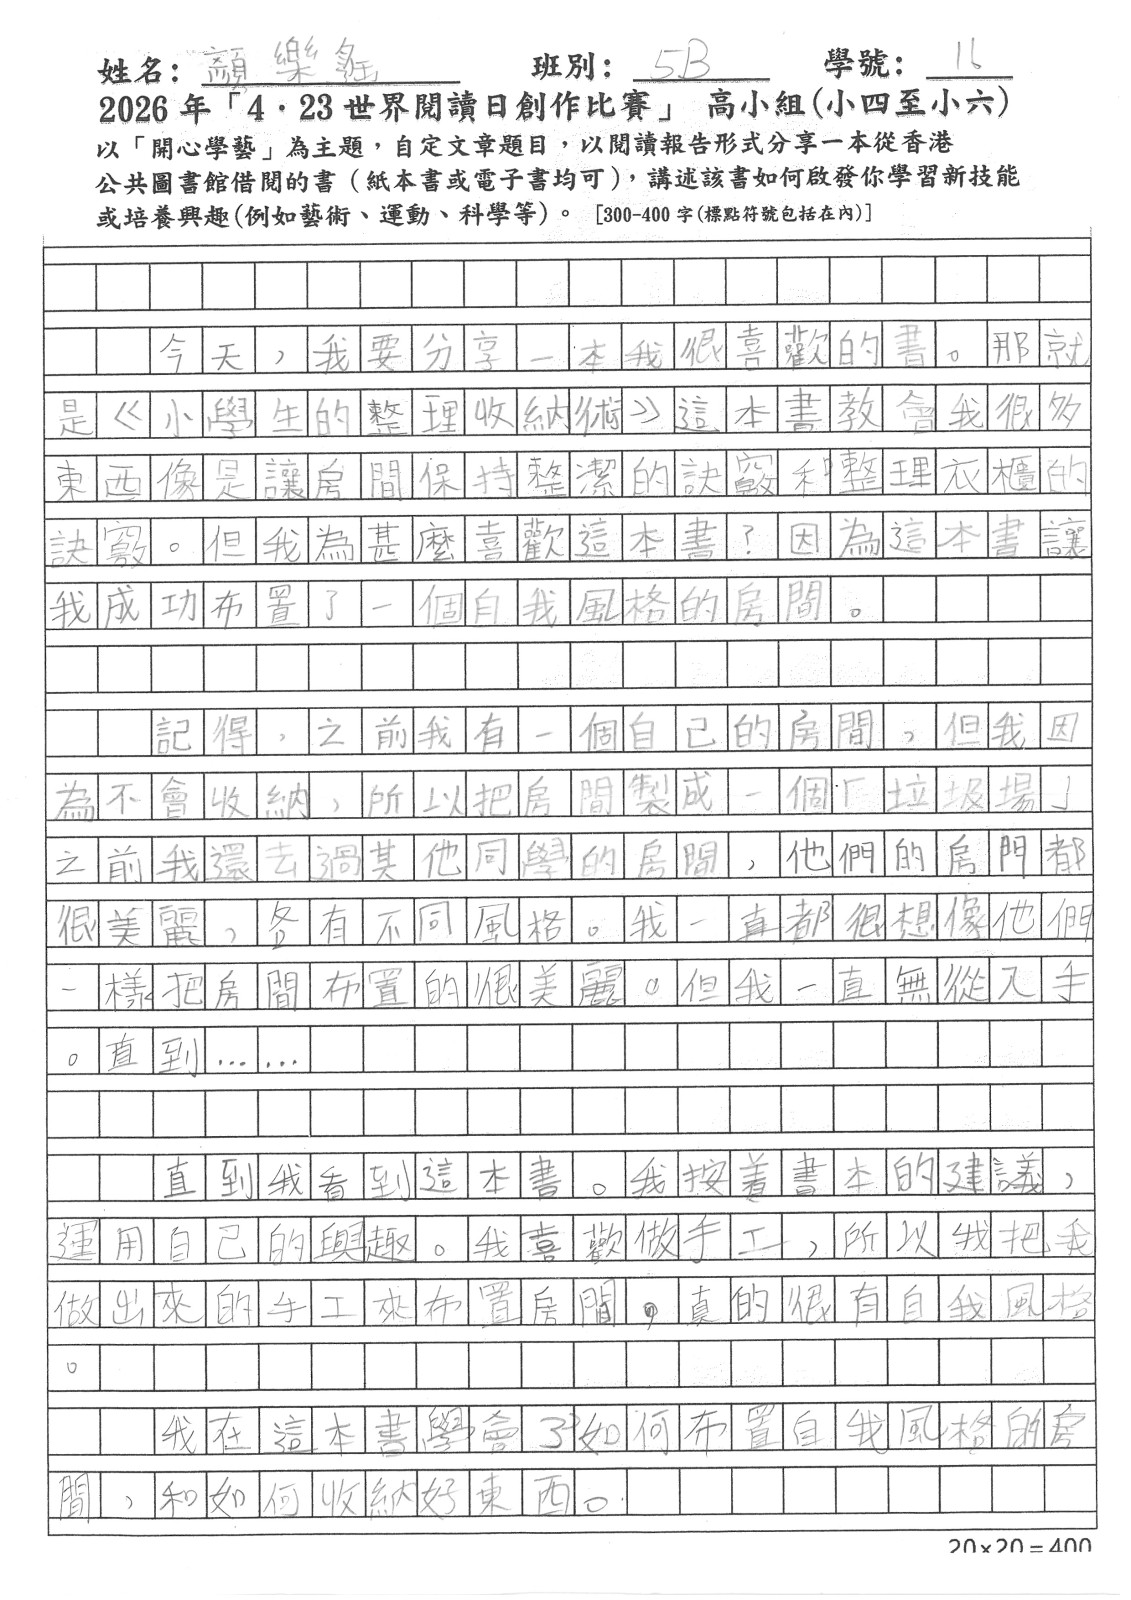 姓名： 顏樂 班別： 5B 學號： 16
2026 年「4．23 世界閱讀日創作比賽」 高小組(小四至小六)
以「開心學藝」為主題，自定文章題目，以閱讀報告形式分享一本從香港
公共圖書館借閱的書（紙本書或電子書均可），講述該書如何啟發你學習新技能
或培養興趣(例如藝術、運動、科學等)。 [300-400 字(標點符號包括在內)]
今天，我要分享一本我很喜歡的書。那就
是《小學生的整理收納術》這本書教會我很多
東西像是讓房間保持整潔的訣竅和整理衣櫃的
訣竅。但我為甚麼喜歡這本書？因為這本書讓
我成功布置了一個自我風格的房間。
記得，之前我有一個自己的房間，但我因
為不會收納，所以把房間製成一個「垃圾場」
之前我還去過其他同學的房間，他們的房門都
很美麗，各有不同風格。我一直都很想像他們
一樣把房間布置的很美麗。但我一直無從入手
。直到……
直到我看到這本書。我按着書本的建議，
運用自己的興趣。我喜歡做手工，所以我把我
做出來的手工來布置房間，真的很有自我風格
。
我在這本書學會了如何布置自我風格的房
間，和如何收納好東西。
20×20=400